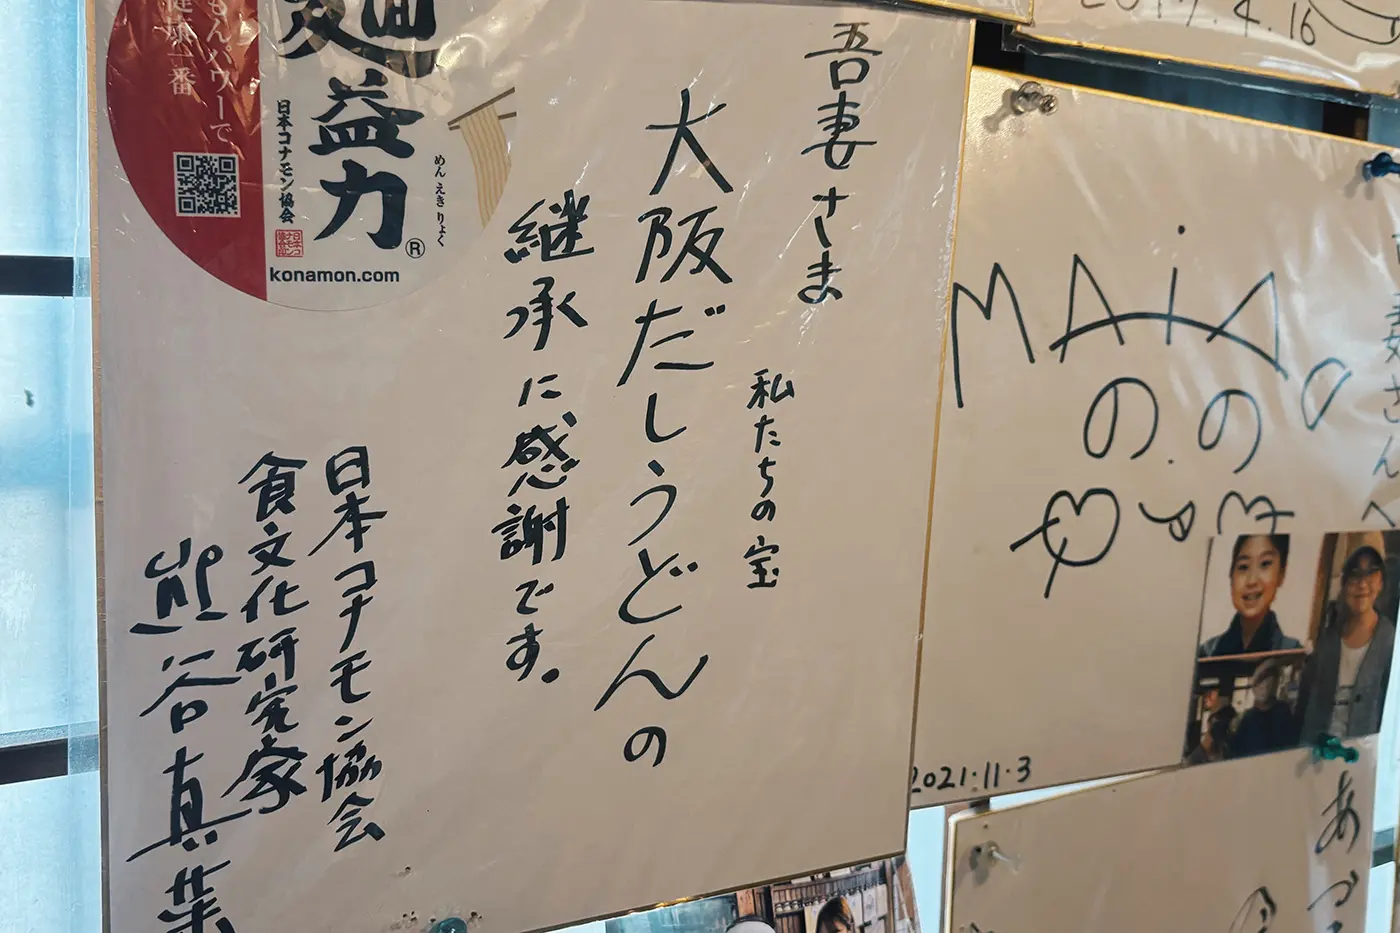 吾妻さま
私たちの宝
大阪だしうどんの
継承に感謝です。
日本コナモン協会
食文化研究家
熊谷真菜
麺益力
めんえきりょく
®
日本コナモン協会
もんパワーで
健康一番
konamon.com
2017.4.16
MAiA
のの
2021.11.3
妻さんへ
あづ